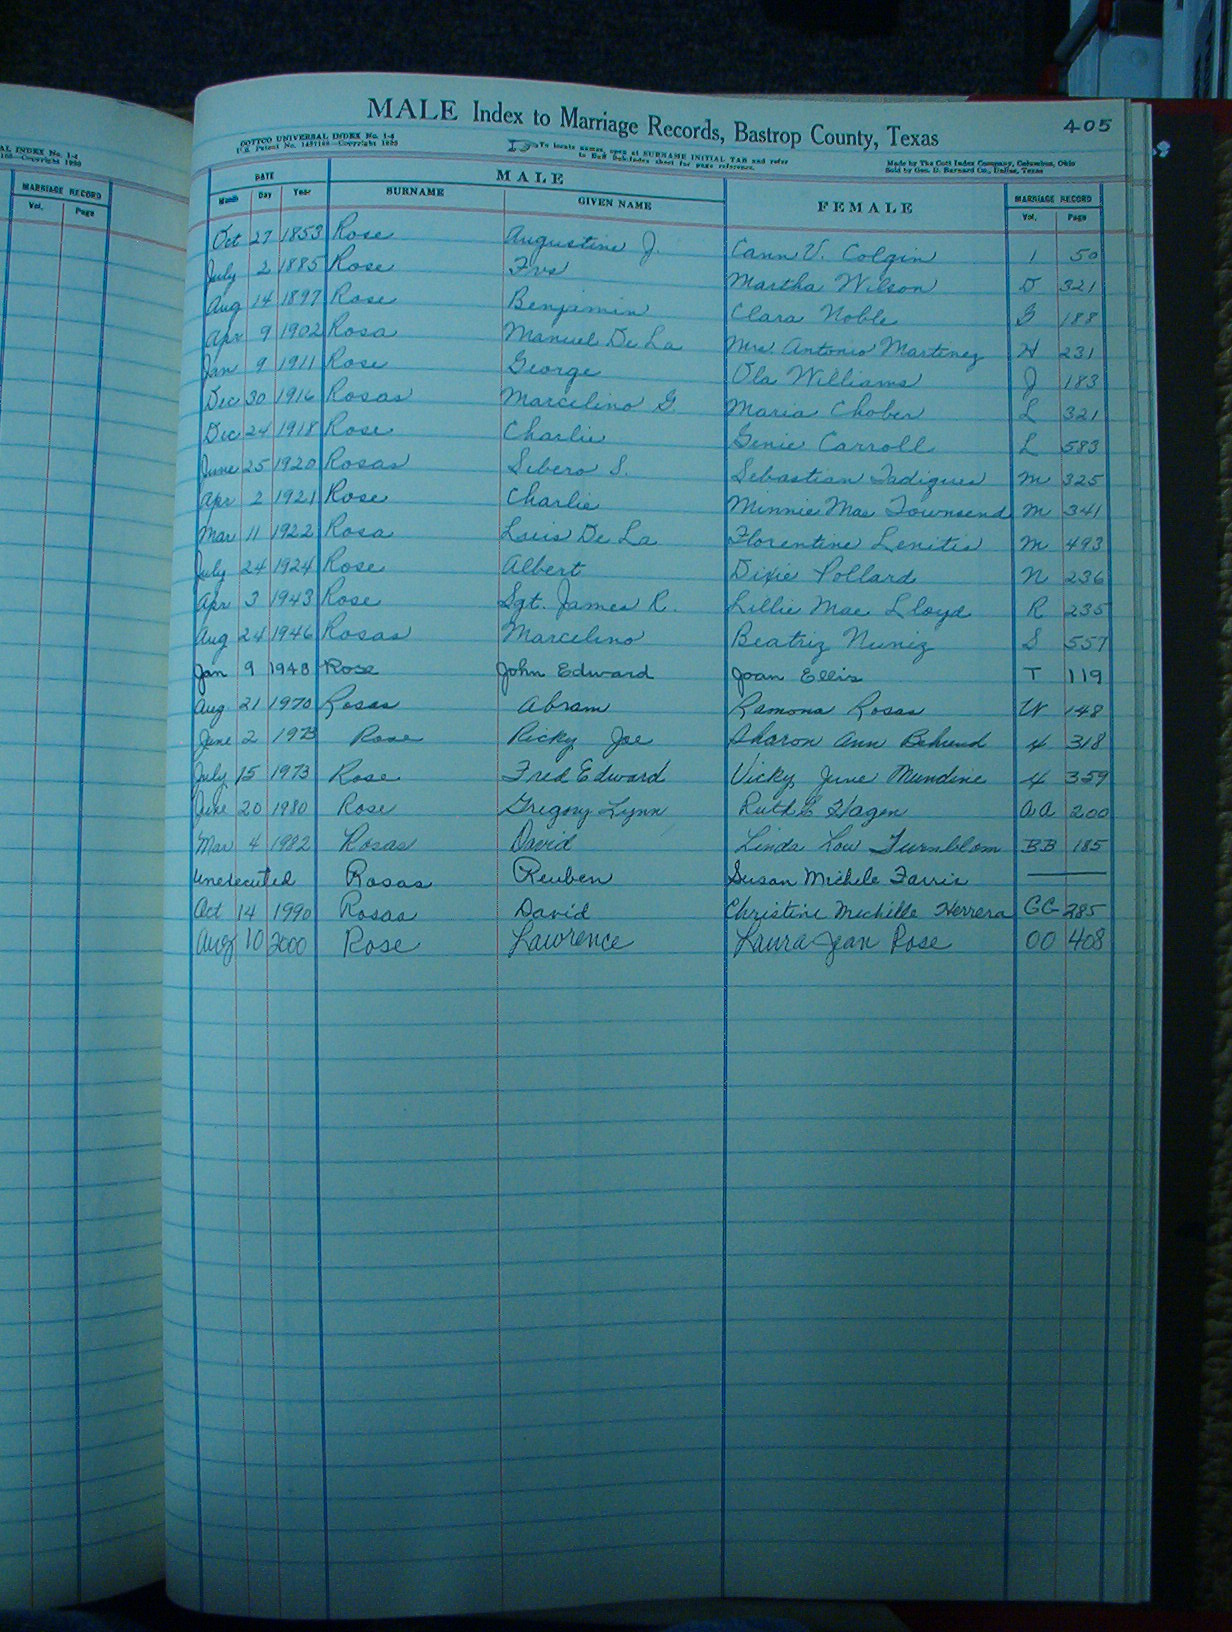 MALE Index to Marriage Records, Bastrop County, Texas
405
COTTCO UNIVERSAL INDEX No. 1-4
U.S. Patent No. 1457188—Copyright 1930
To locate names, open at SURNAME INITIAL TAB and refer
to Buff Sub-Index sheet for page reference.
Made by The Cott Index Company, Columbus, Ohio
Sold by Geo. D. Barnard Co., Dallas, Texas
MARRIAGE RECORD
Vol. Page
DATE MALE FEMALE MARRIAGE RECORD
Month Day Year SURNAME GIVEN NAME Vol. Page
Oct 27 1853 Rose Augustine J. Cann V. Colgin 1 50
July 2 1885 Rose Frs Martha Wilson D 321
Aug 14 1897 Rose Benjamin Clara Noble G 188
Apr 9 1902 Rosa Manuel De La Mrs. Antonio Martinez H 231
Jan 9 1911 Rose George Ola Williams J 183
Dec 30 1916 Rosas Marcelino G Maria Chober L 321
Dec 24 1918 Rose Charlie Genie Carroll L 583
June 25 1920 Rosas Sebero S. Sebastian Tadigues M 325
Apr 2 1921 Rose Charlie Minnie Mae Townsend M 341
Mar 11 1922 Rosa Luis De La Florentine Lenitis M 493
July 24 1924 Rose Albert Dixie Pollard N 236
Apr 3 1943 Rose Sgt. James R. Lillie Mae Lloyd R 235
Aug 24 1946 Rosas Marcelino Beatriz Nuniz S 557
Jan 9 1948 Rose John Edward Joan Ellis T 119
Aug 21 1970 Rosas Abram Ramona Rosas W 148
June 2 1973 Rose Ricky Joe Sharon Ann Behrend 4 318
July 15 1973 Rose Fred Edward Vicky June Mundine 4 359
June 20 1980 Rose Gregory Lynn Ruth E Hagen AA 200
Mar 4 1982 Rosas David Linda Lou Turnblom BB 185
Unexecuted Rosas Reuben Susan Michele Farris
Oct 14 1990 Rosas David Christine Michelle Herrera GG 285
Aug 10 2000 Rose Lawrence Laura Jean Rose OO 408